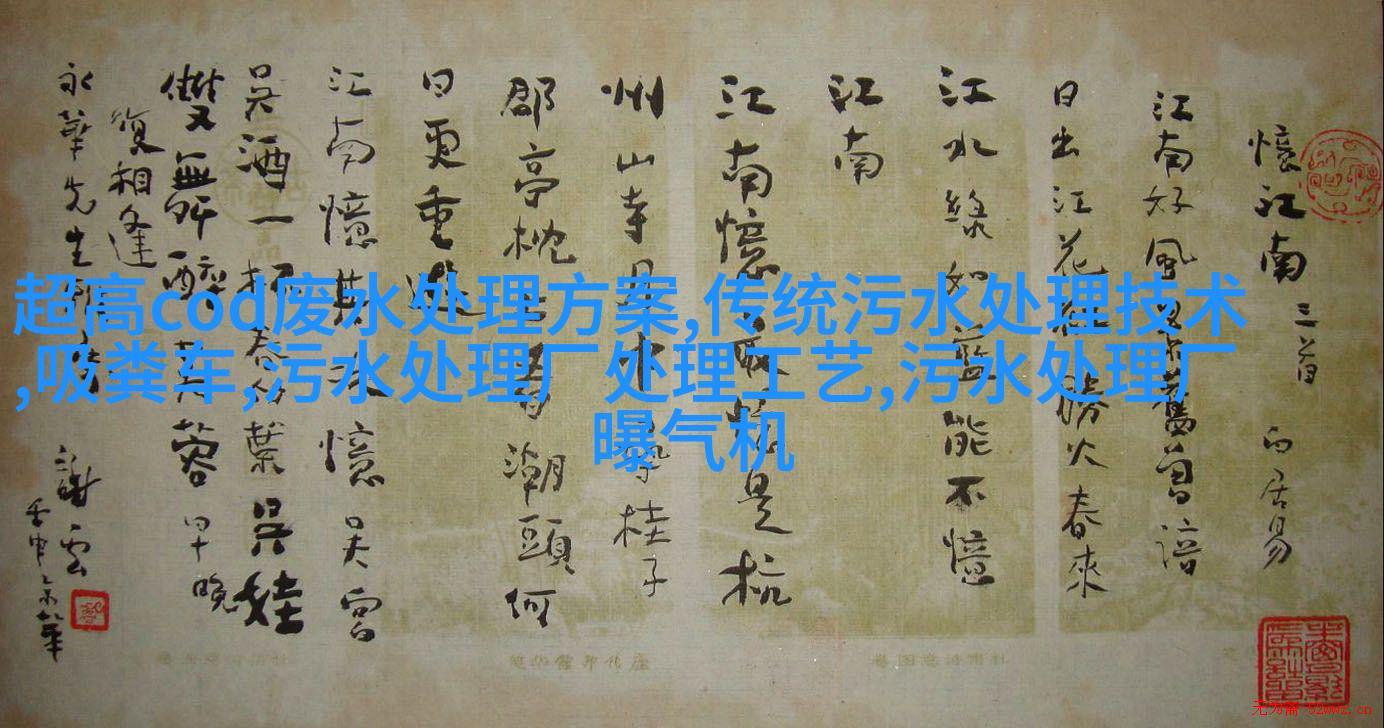 憶江南 三首 白居易
江南好風景舊曾諳
日出江花紅勝火春來
江水綠如藍能不憶
江南
江南憶最憶是杭
州山寺月中尋桂子
郡亭枕上看潮頭何
日更重遊
江南憶其次憶吳宮
吳酒一杯春竹葉吳娃
雙舞醉芙蓉早晚
復相逢
永華先生
謝雲
壬申
超高cod废水处理方案,传统污水处理技术
,吸粪车,污水处理厂处理工艺,污水处理厂
曝气机
无为斋 52wwz.cn